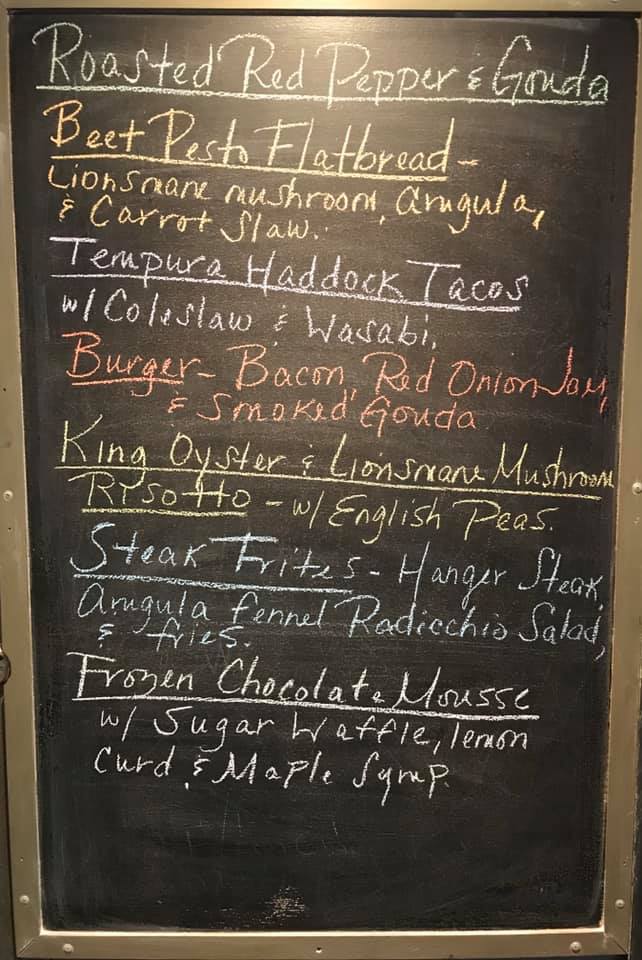 Roasted Red Pepper & Gouda
Beet Pesto Flatbread -
Lionsmane mushroom, arugula,
& Carrot Slaw.
Tempura Haddock Tacos
w/ Coleslaw & Wasabi.
Burger - Bacon, Red Onion Jam,
& Smoked Gouda
King Oyster & Lionsmane Mushroom
Risotto - w/ English Peas.
Steak Frites - Hanger Steak,
Arugula fennel Radicchio Salad,
& fries.
Frozen Chocolate Mousse
w/ Sugar Waffle, lemon
curd, & Maple Syrup.